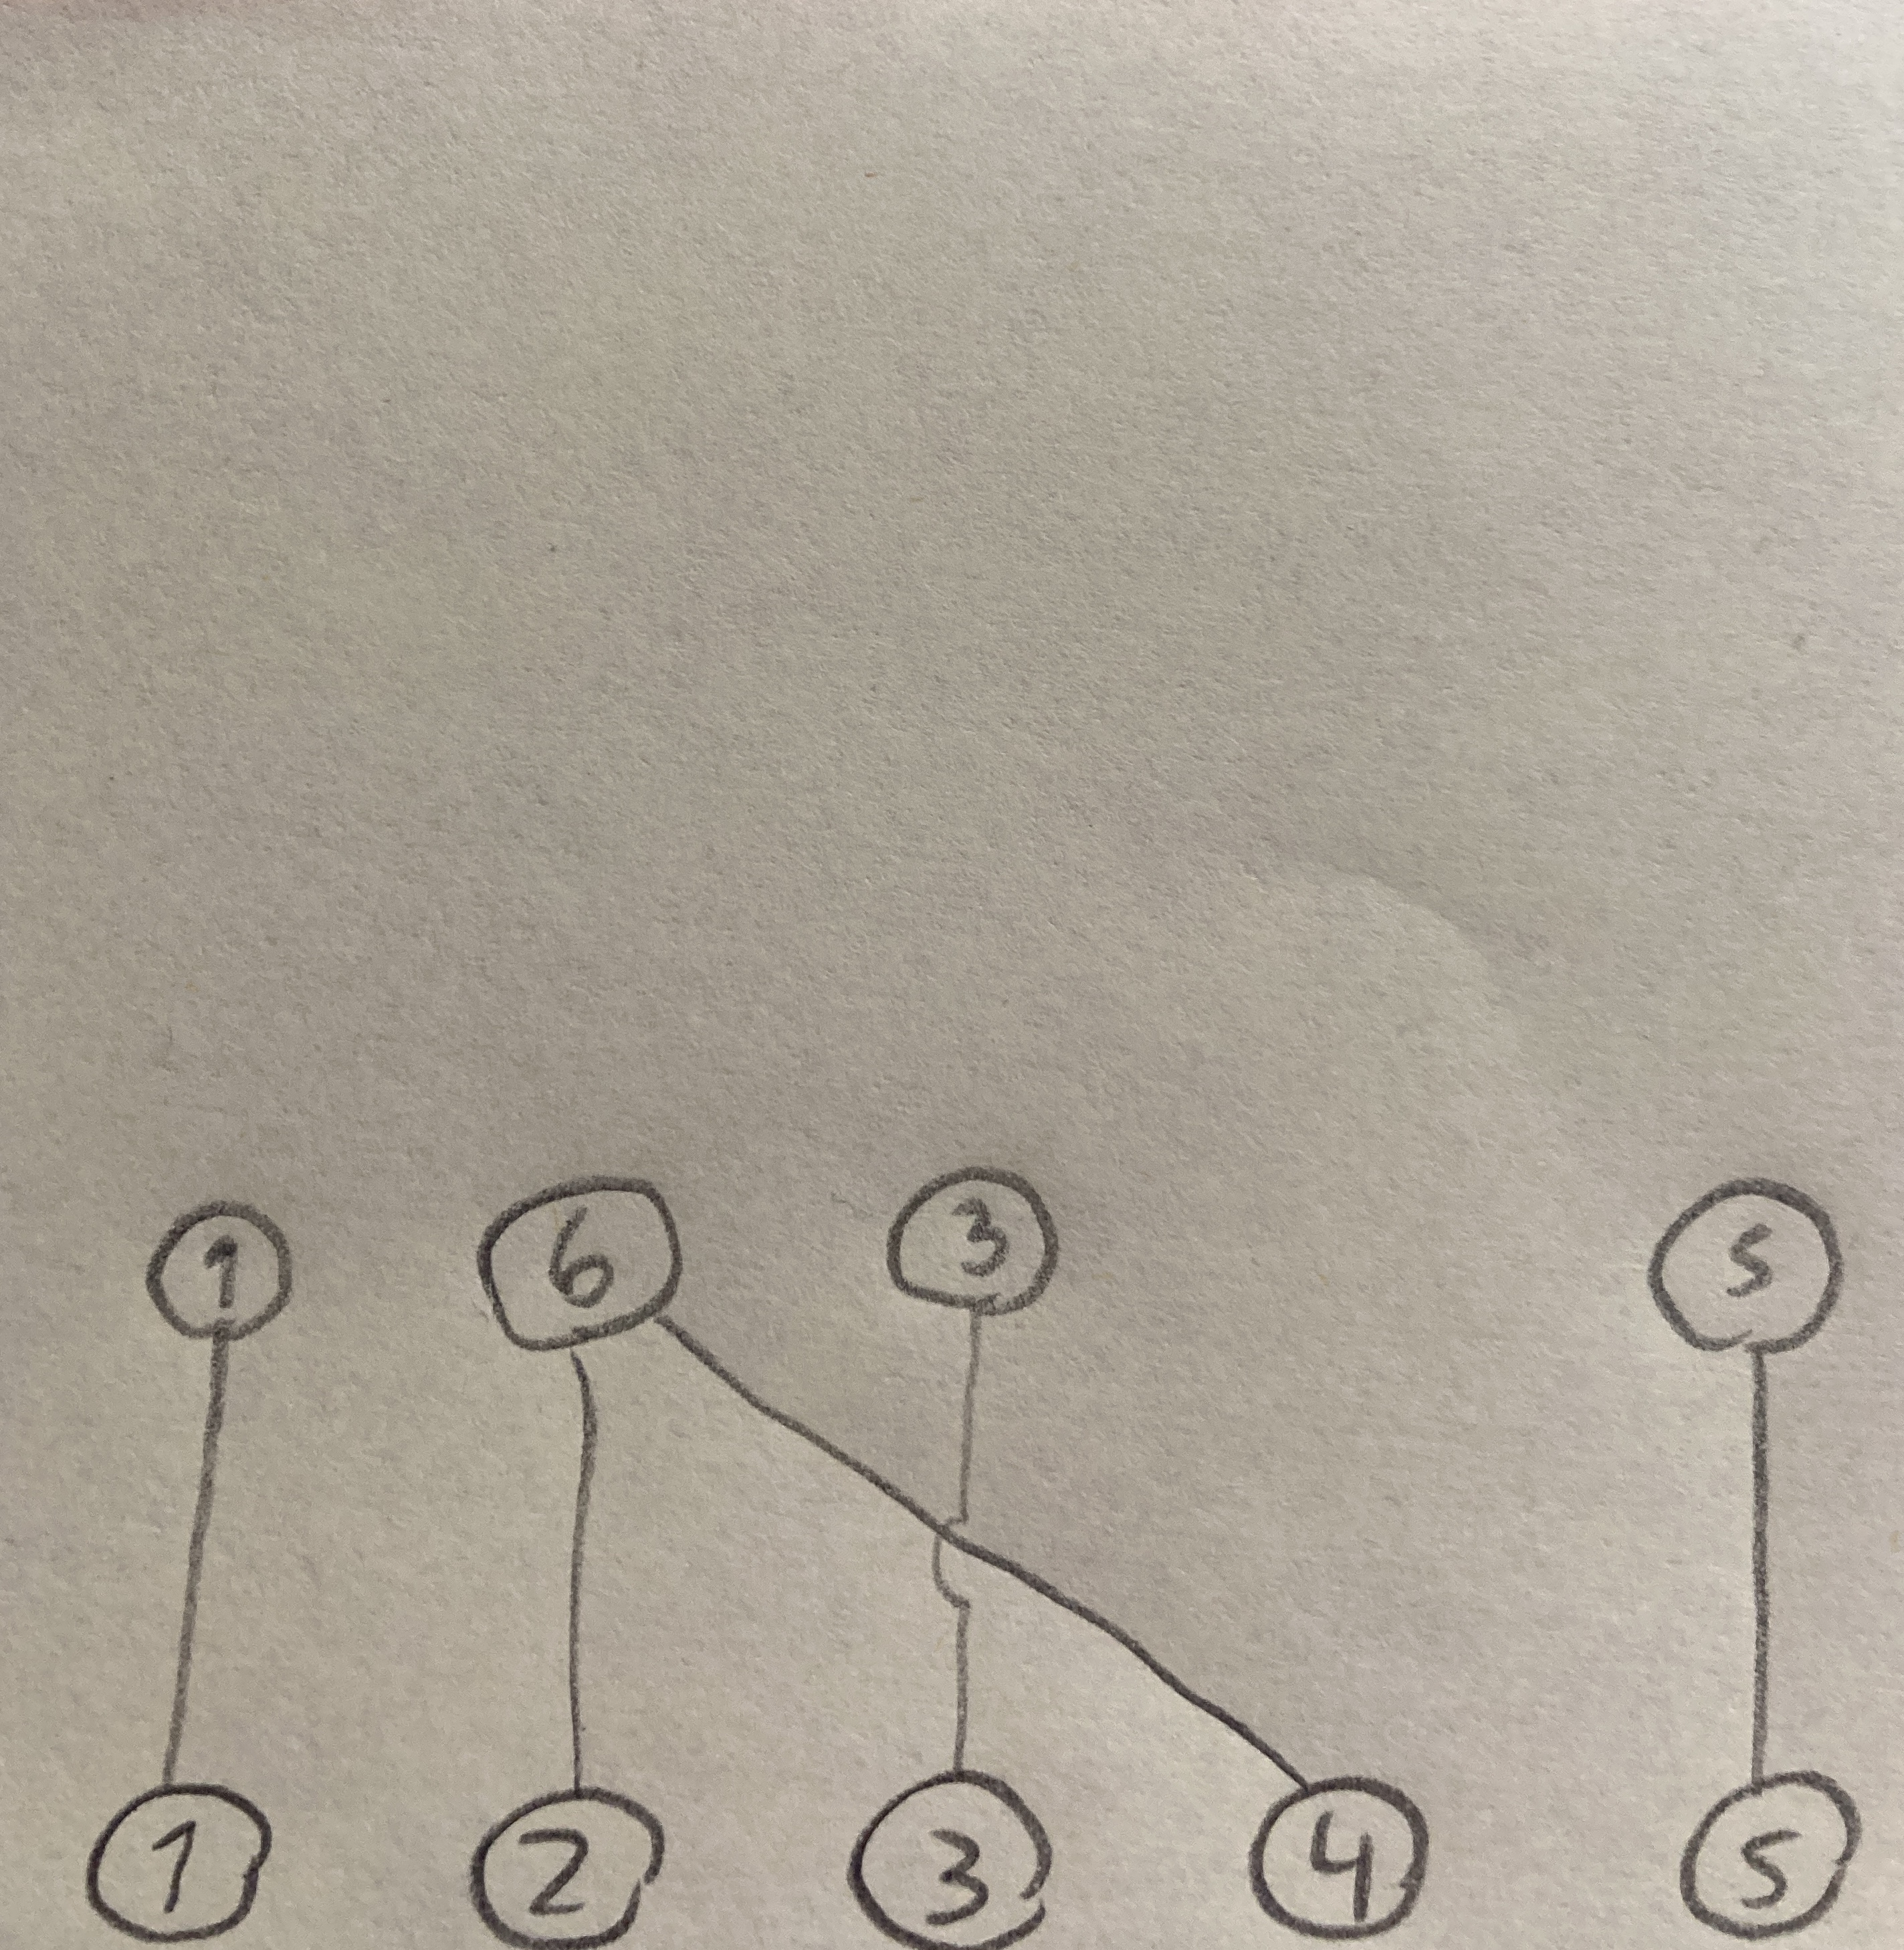 1 6 3 5
1 2 3 4 5